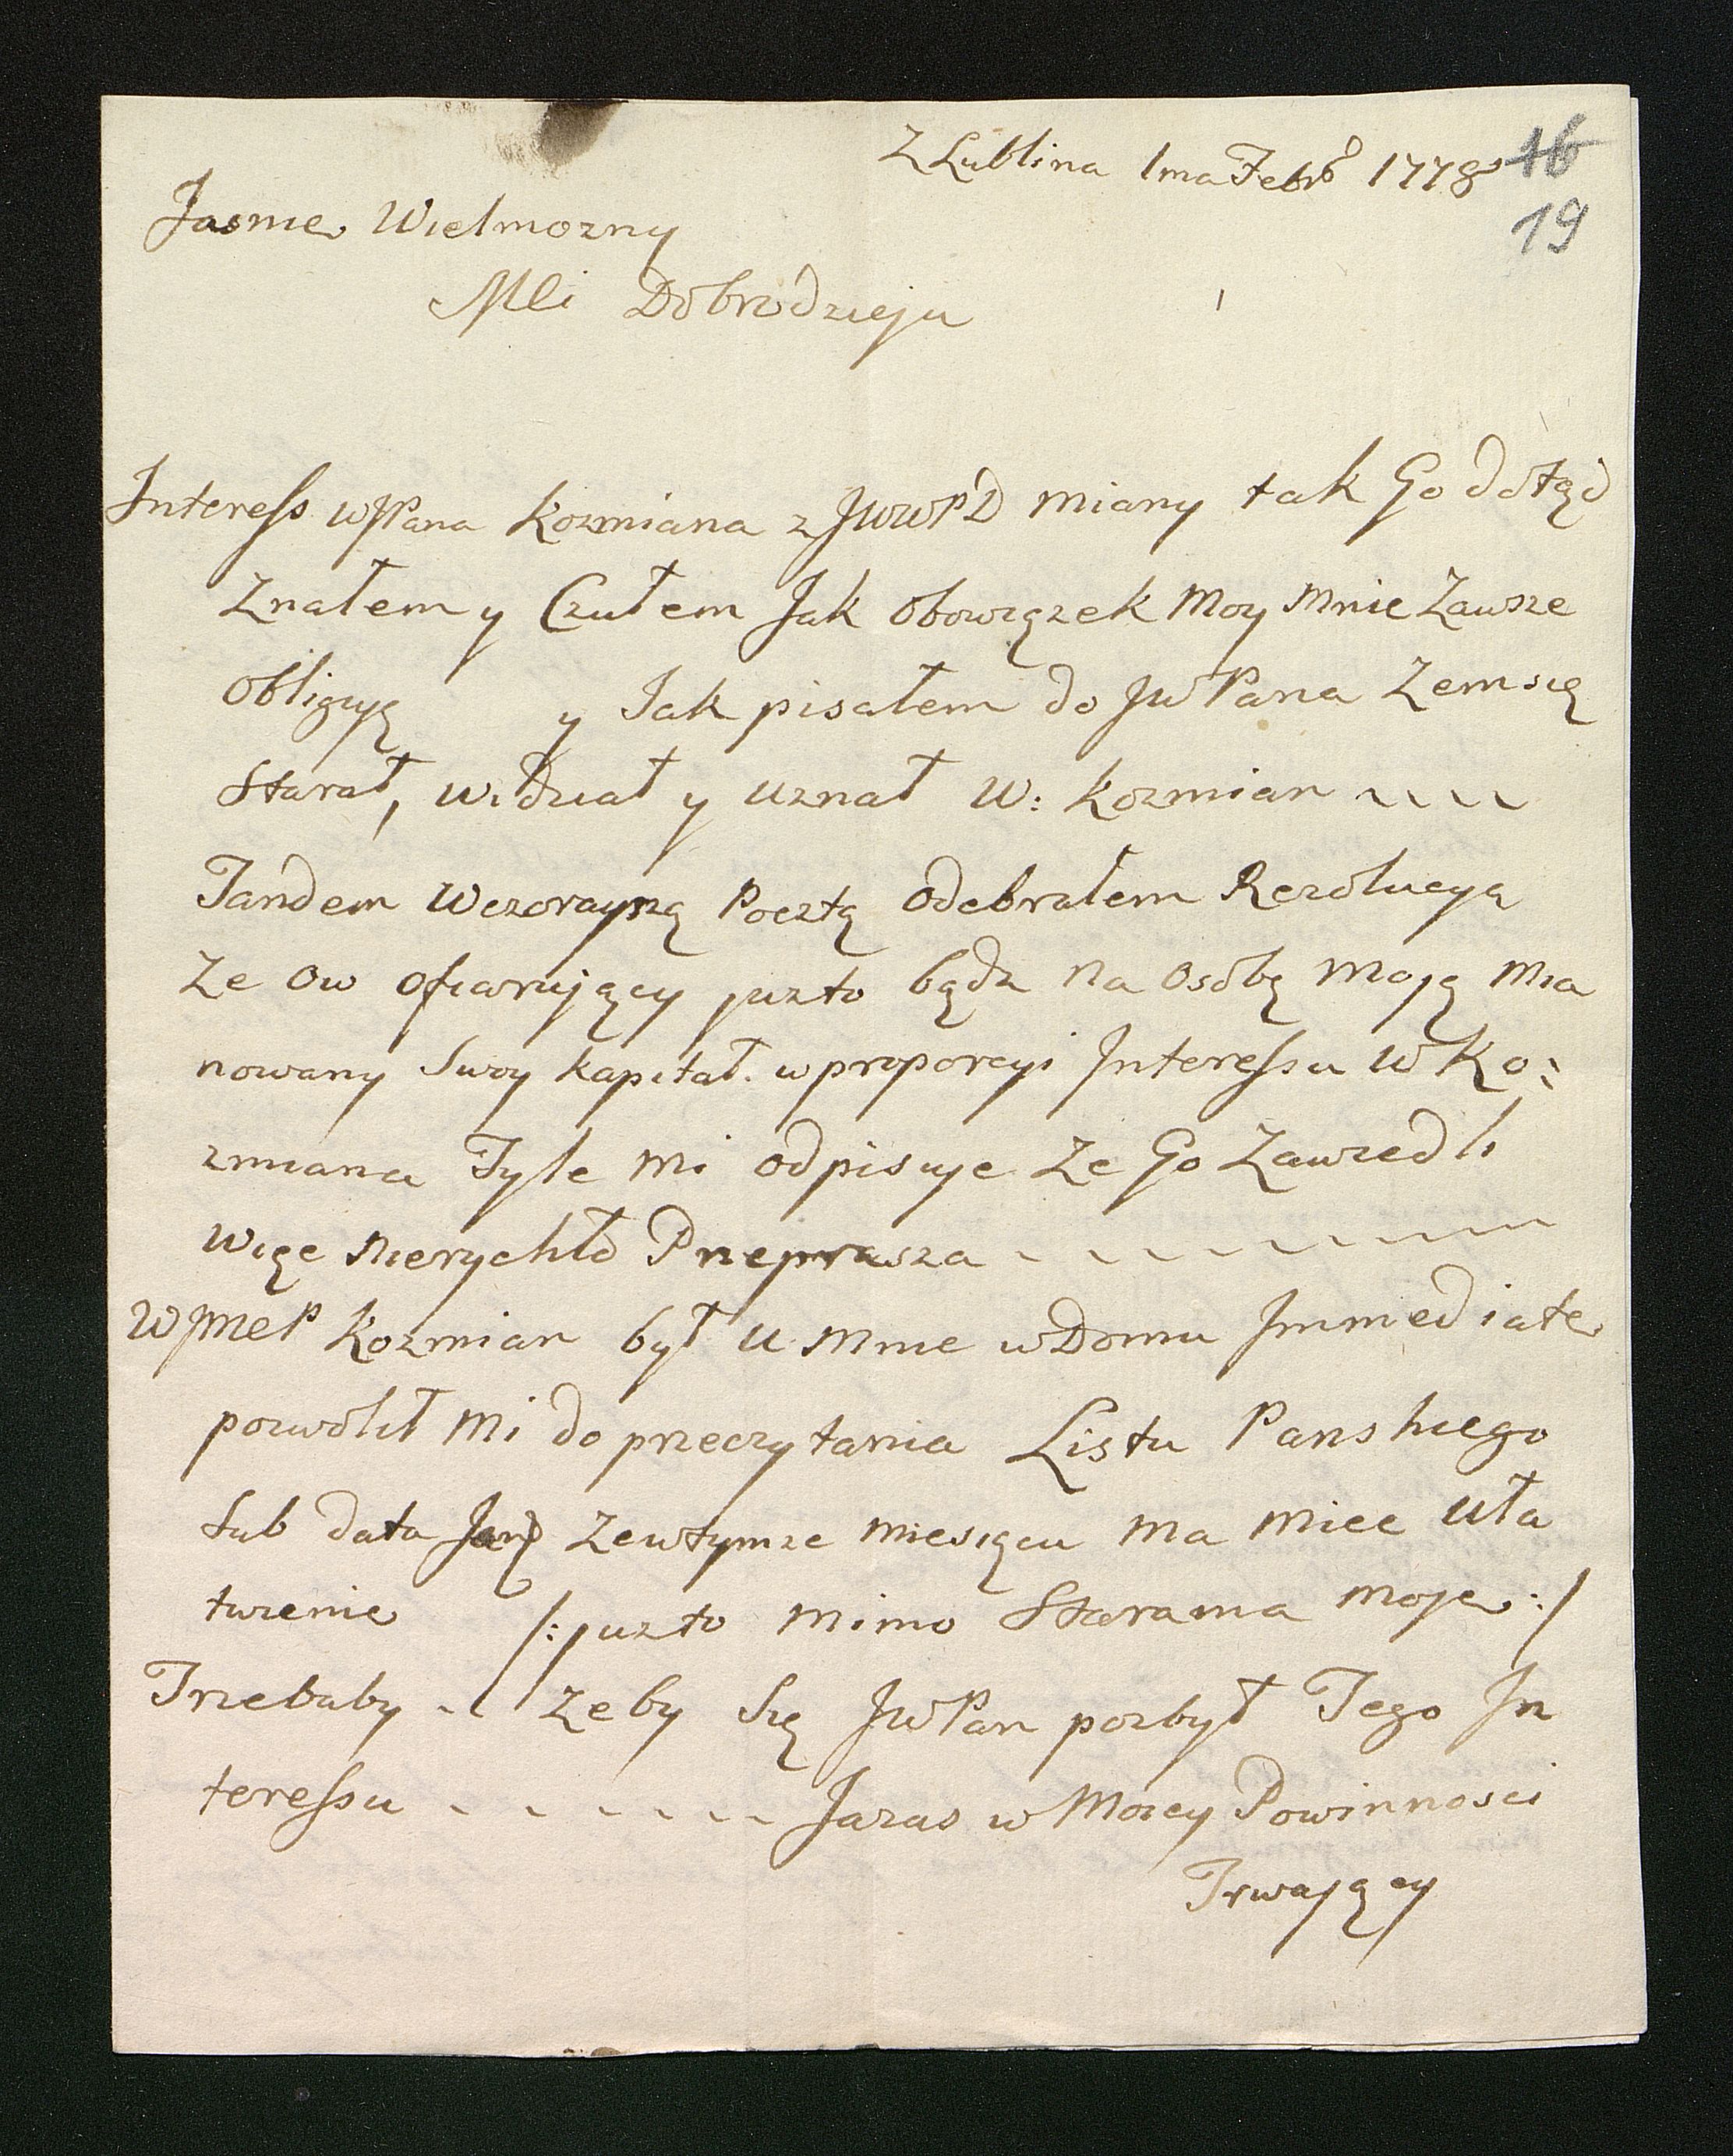 Z Lublina 1ma Febr 1778
16
19
Jasnie Wielmozny
Mci Dobrodzieju
Interess WJPana Kozmiana z JWWPD miany tak Go dotąd
Znałem y Czułem Jak obowiązek Moy Mnie Zawsze
obliguię y Jak pisałem do JWPana Zem się
Starał, widział y uznał W: Kozmian ~ ~ ~ ~
Tandem Wczorayszą Pocztą odebrałem Rezolucyą
Ze ow ofiarujący juzto bądz na osobę Moją Mia
nowany Swoy kapitał w proporcyi Interessu W Ko:
zmiana Tyle Mi odpisuje Ze Go Zawiedli
więc Nierychło Przeprasza ~ ~ ~ ~ ~ ~ ~ ~
WJMCP Kozmian był u Mnie w Domu Immediate
pozwolił Mi do przeczytania Listu Panskiego
Sub data Jan Ze w tymze Miesiącu Ma Miec uła
twienie /: juzto Mimo Starania Moje :/
Trzebaby ~ ~ Zeby Się JWPan pozbył Tego In
teressu - - - - - - - Ja zas w Moiey Powinnosci
Trwający